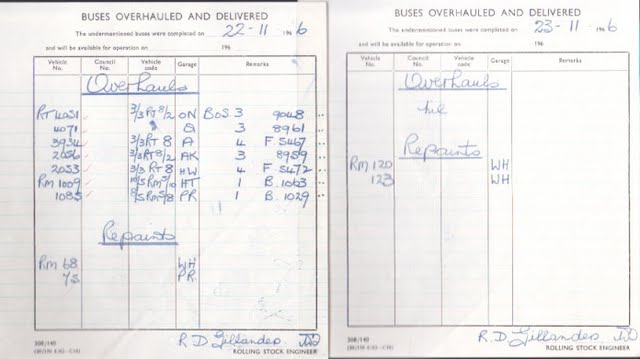 BUSES OVERHAULED AND DELIVERED
The undermentioned buses were completed on 22-11 196 6
and will be available for operation on 196
Vehicle No. Council No. Vehicle code Garage Remarks
Overhauls
RT 4031 3/3RT8/2 ON BOS 3 9048 "
4071 Q 3 8961 "
3934 3/3RT 8 A 4 F. 5467 "
2056 3/3RT8/2 AK 3 8959 "
2053 3/3 RT 8 HW 4 F. 5472 "
RM 1009 HT 1 B. 1063 "
1085 PR 1 B. 1029 "
Repaints
RM 68 WH
73 PR.
308/140
R. D Gillandes
ROLLING STOCK ENGINEER
BUSES OVERHAULED AND DELIVERED
The undermentioned buses were completed on 23-11 196 6
and will be available for operation on 196
Vehicle No. Council No. Vehicle code Garage Remarks
Overhauls
Nil
Repaints
RM 120 WH
123 WH
308/140
R. D. Gillandes
ROLLING STOCK ENGINEER